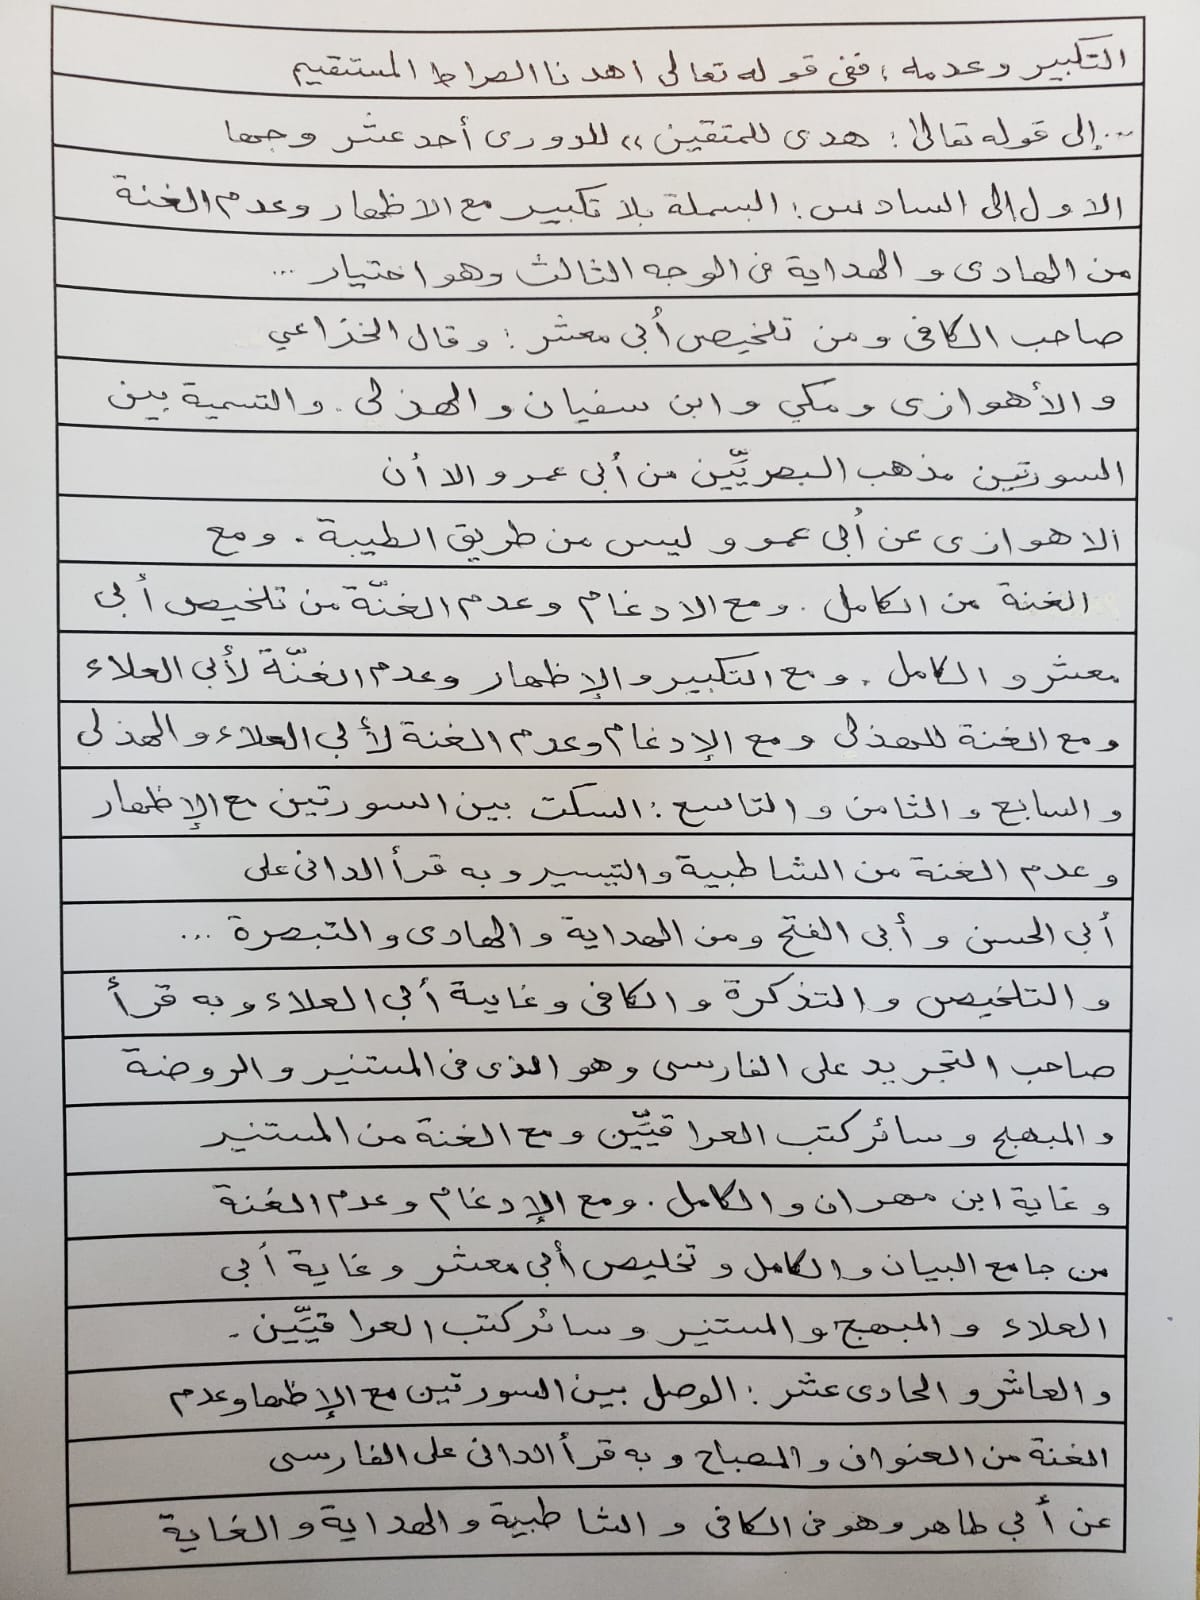 التكبير وعدمه؛ ففى قوله تعالى اهدنا الصراط المستقيم
...إلى قوله تعالى؛ هدى للمتقين» للدورى أحد عشر وجها
الاول إلى السادس؛ البسملة بلا تكبير مع الاظهار وعدم الغنة
من الهادى و الهداية فى الوجه الثالث وهو اختيار ...
صاحب الكافى ومن تلخيص أبى معشر؛ وقال الخزاعي
و الأهوازى و مكي و ابن سفيان و الهذلى. والتسمية بين
السورتين مذهب البصريِّين من أبى عمرو الا أن
الاهوازى عن أبى عمرو و ليس من طريق الطيبة. ومع
الغنة من الكامل. ومع الادغام وعدم الغنّة من تلخيص أبى
معشر و الكامل. ومع التكبير والإظهار وعدم الغنّة لأبى العلاء
ومع الغنة للهذلى ومع الإدغام وعدم الغنة لأبى العلاء و الهذلى
و السابع و الثامن و التاسع: السكت بين السورتين مع الإظهار
و عدم الغنة من الشاطبية والتيسير وبه قرأ الدانى على
أبى الحسن و أبى الفتح ومن الهداية و الهادى و التبصرة ...
و التلخيص و التذكرة و الكافى و غاية أبى العلاء وبه قرأ
صاحب التجريد على الفارسى وهو الذى فى المستنير و الروضة
و المبهج و سائر كتب العراقيِّين ومع الغنة من المستنير
و غاية ابن مهران و الكامل. ومع الإدغام وعدم الغنة
من جامع البيان و الكامل و تخليص أبى معشر و غاية أبى
العلاء و المبهج والمستنير و سائر كتب العراقيِّين.
و العاشر و الحادى عشر: الوصل بين السورتين مع الإظهار وعدم
الغنة من العنوان و المصباح وبه قرأ الدانى على الفارسى
عن أبى طاهر وهو فى الكافى و الشاطبية و الهداية و الغاية